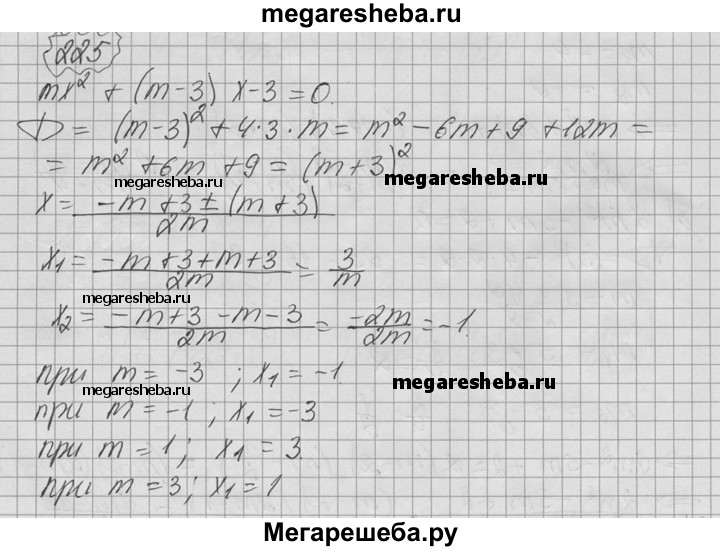 megaresheba.ru
225
mx² + (m-3) x-3=0.
D = (m-3)² + 4·3·m = m² - 6m + 9 + 12m =
= m² + 6m + 9 = (m+3)²
megaresheba.ru
megaresheba.ru
x = (-m+3±(m+3))/2m
x₁ = (-m+3+m+3)/2m = 3/m
megaresheba.ru
x₂ = (-m+3-m-3)/2m = -2m/2m = -1.
при m = -3 ; x₁ = -1
megaresheba.ru
megaresheba.ru
при m = -1 ; x₁ = -3
при m = 1 ; x₁ = 3.
при m = 3 ; x₁ = 1
Мегарешеба.ру